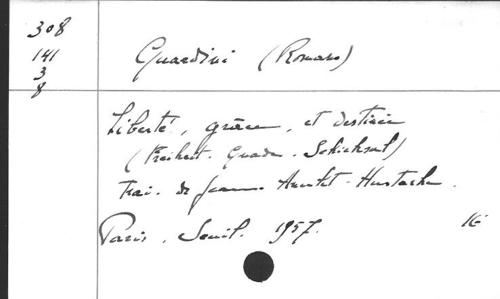 308
141
3
8
Guardini (Romano)
Liberté, grâce, et destinée
(Freiheit. Gnade. Schicksal)
Trad. de Jeanne Ancelet-Hustache.
Paris. Seuil. 1957.